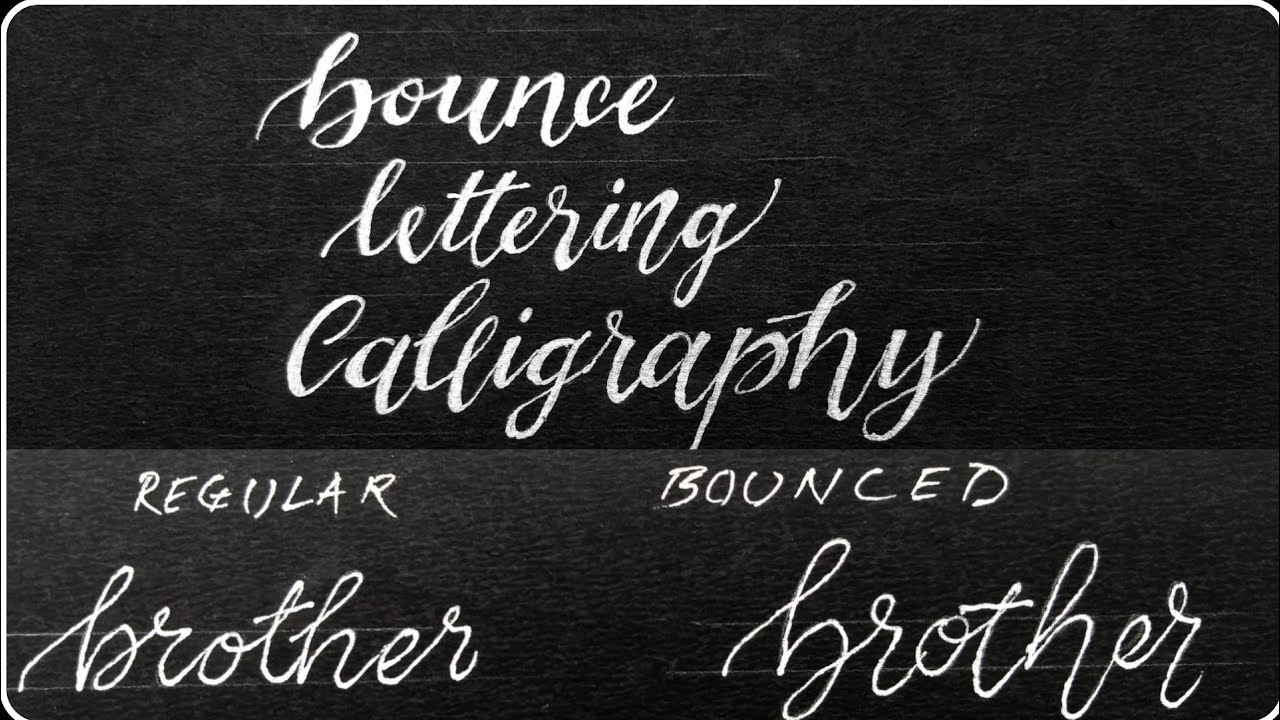 bounce
lettering
Calligraphy
REGULAR
BOUNCED
brother
brother